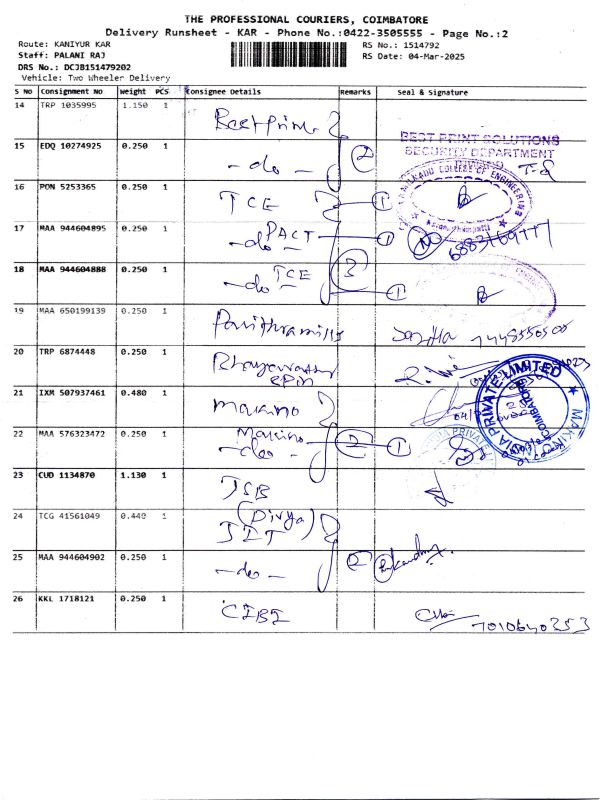 THE PROFESSIONAL COURIERS, COIMBATORE
Delivery Runsheet - KAR - Phone No.:0422-3505555 - Page No.:2
Route: KANIYUR KAR RS No.: 1514792
Staff: PALANI RAJ RS Date: 04-Mar-2025
DRS No.: DCJB151479202
Vehicle: Two Wheeler Delivery
S NO Consignment NO Weight PCS Consignee Details Remarks Seal & Signature
14 TRP 1035995 1.150 1 Best Print
BEST PRINT SOLUTIONS
SECURITY DEPARTMENT
15 EDQ 10274925 0.250 1 -do- 2
COLLEGE OF ENGINEERING
16 PON 5253365 0.250 1 TCE 1
17 MAA 944604895 0.250 1 PACT 1
-do-
18 MAA 944604888 0.250 1 TCE 3
-do- 1
19 MAA 650199139 0.250 1 Pavithramills
20 TRP 6874448 0.250 1
21 IXM 507937461 0.480 1 makino
PRIVATE LIMITED
COIMBATORE
22 MAA 576323472 0.250 1 Makino 2 1
-do-
23 CUD 1134870 1.130 1 JSB
24 TCG 41561049 0.440 1 (Divya)
JIT
25 MAA 944604902 0.250 1 -do- 2
26 KKL 1718121 0.250 1 CIBI
7010640253